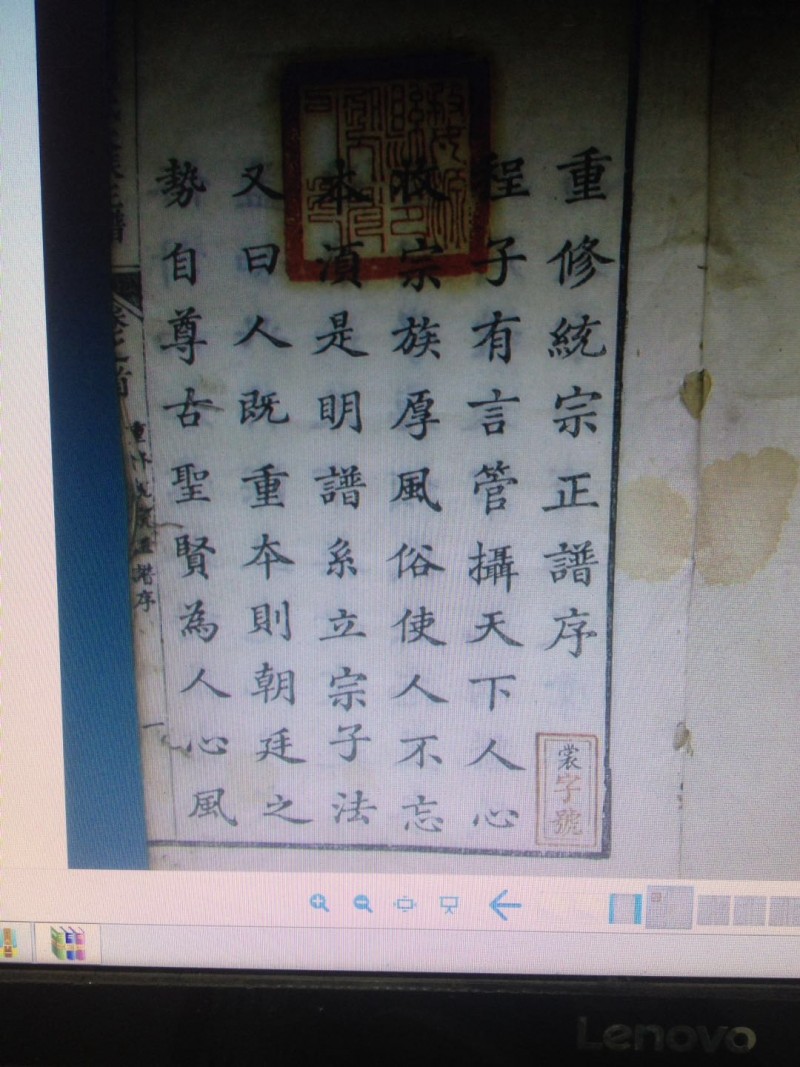 重修統宗正譜序
程子有言管攝天下人心
收宗族厚風俗使人不忘
本須是明譜系立宗子法
又曰人既重本則朝廷之
勢自尊古聖賢為人心風
裳字號
一
Lenovo